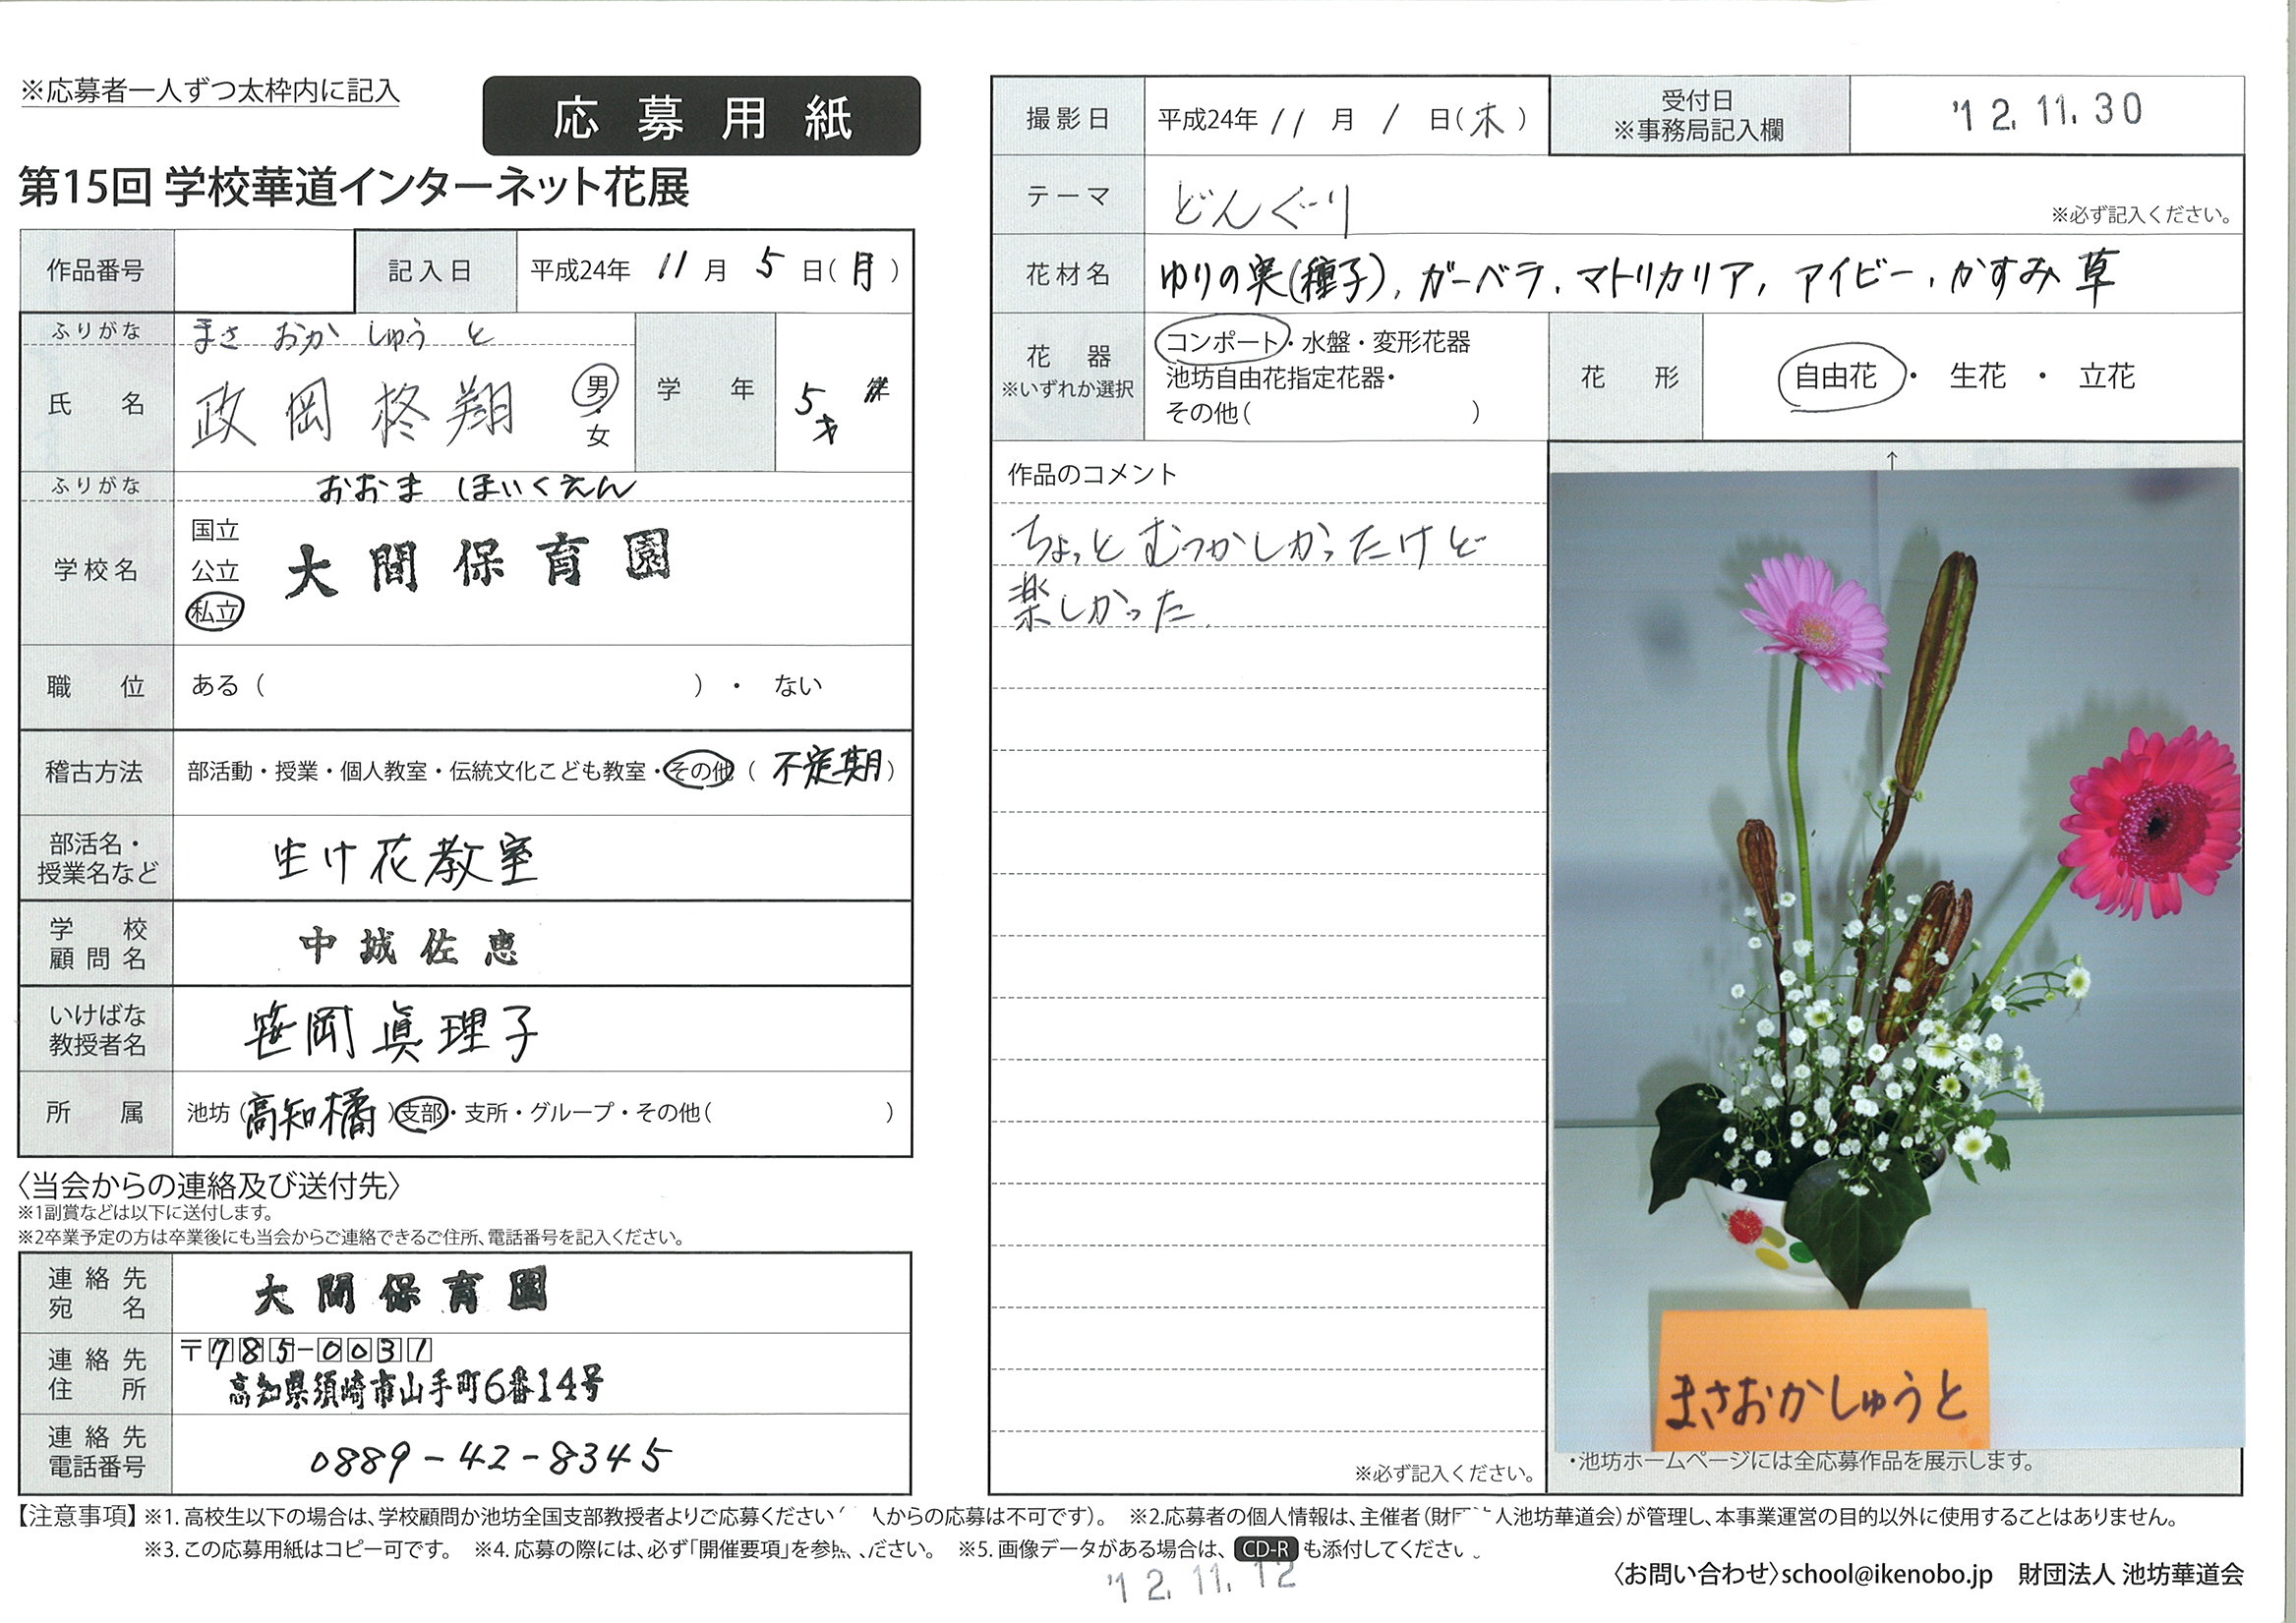 ※応募者一人ずつ太枠内に記入
応募用紙
第15回 学校華道インターネット花展
作品番号
記入日 平成24年 11月 5日(月)
ふりがな まさ おか しゅう と
氏名 政岡柊翔 男・女
学年 5才
ふりがな おおま ほいくえん
学校名 国立 公立 私立 大間保育園
職位 ある( )・ ない
稽古方法 部活動・授業・個人教室・伝統文化こども教室・その他( 不定期 )
部活名・授業名など 生け花教室
学校顧問名 中城佐恵
いけばな教授者名 笹岡眞理子
所属 池坊(高知橘)支部・支所・グループ・その他( )
〈当会からの連絡及び送付先〉
※1副賞などは以下に送付します。
※2卒業予定の方は卒業後にも当会からご連絡できるご住所、電話番号を記入ください。
連絡先宛名 大間保育園
連絡先住所 〒785-0031
高知県須崎市山手町6番14号
連絡先電話番号 0889-42-8345
撮影日 平成24年 11月 1日(木)
受付日 ※事務局記入欄 '12.11.30
テーマ どんぐり ※必ず記入ください。
花材名 ゆりの実(種子), ガーベラ, マトリカリア, アイビー, かすみ草
花器 ※いずれか選択 コンポート・水盤・変形花器
池坊自由花指定花器・
その他( )
花形 自由花・生花・立花
作品のコメント
ちょっとむつかしかったけど
楽しかった.
※必ず記入ください。
↑
まさおかしゅうと
・池坊ホームページには全応募作品を展示します。
【注意事項】※1. 高校生以下の場合は、学校顧問か池坊全国支部教授者よりご応募ください( 人からの応募は不可です)。 ※2.応募者の個人情報は、主催者(財団 人池坊華道会)が管理し、本事業運営の目的以外に使用することはありません。
※3. この応募用紙はコピー可です。 ※4. 応募の際には、必ず「開催要項」を参照 ださい。 ※5. 画像データがある場合は、CD-Rも添付してください。
'12.11.12
〈お問い合わせ〉school@ikenobo.jp 財団法人 池坊華道会